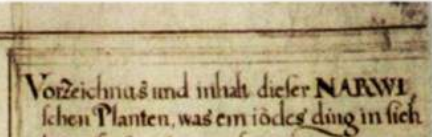 Vorzeichnus und inhalt dieser NARWI
schen Planten, was ein iödes ding in sich